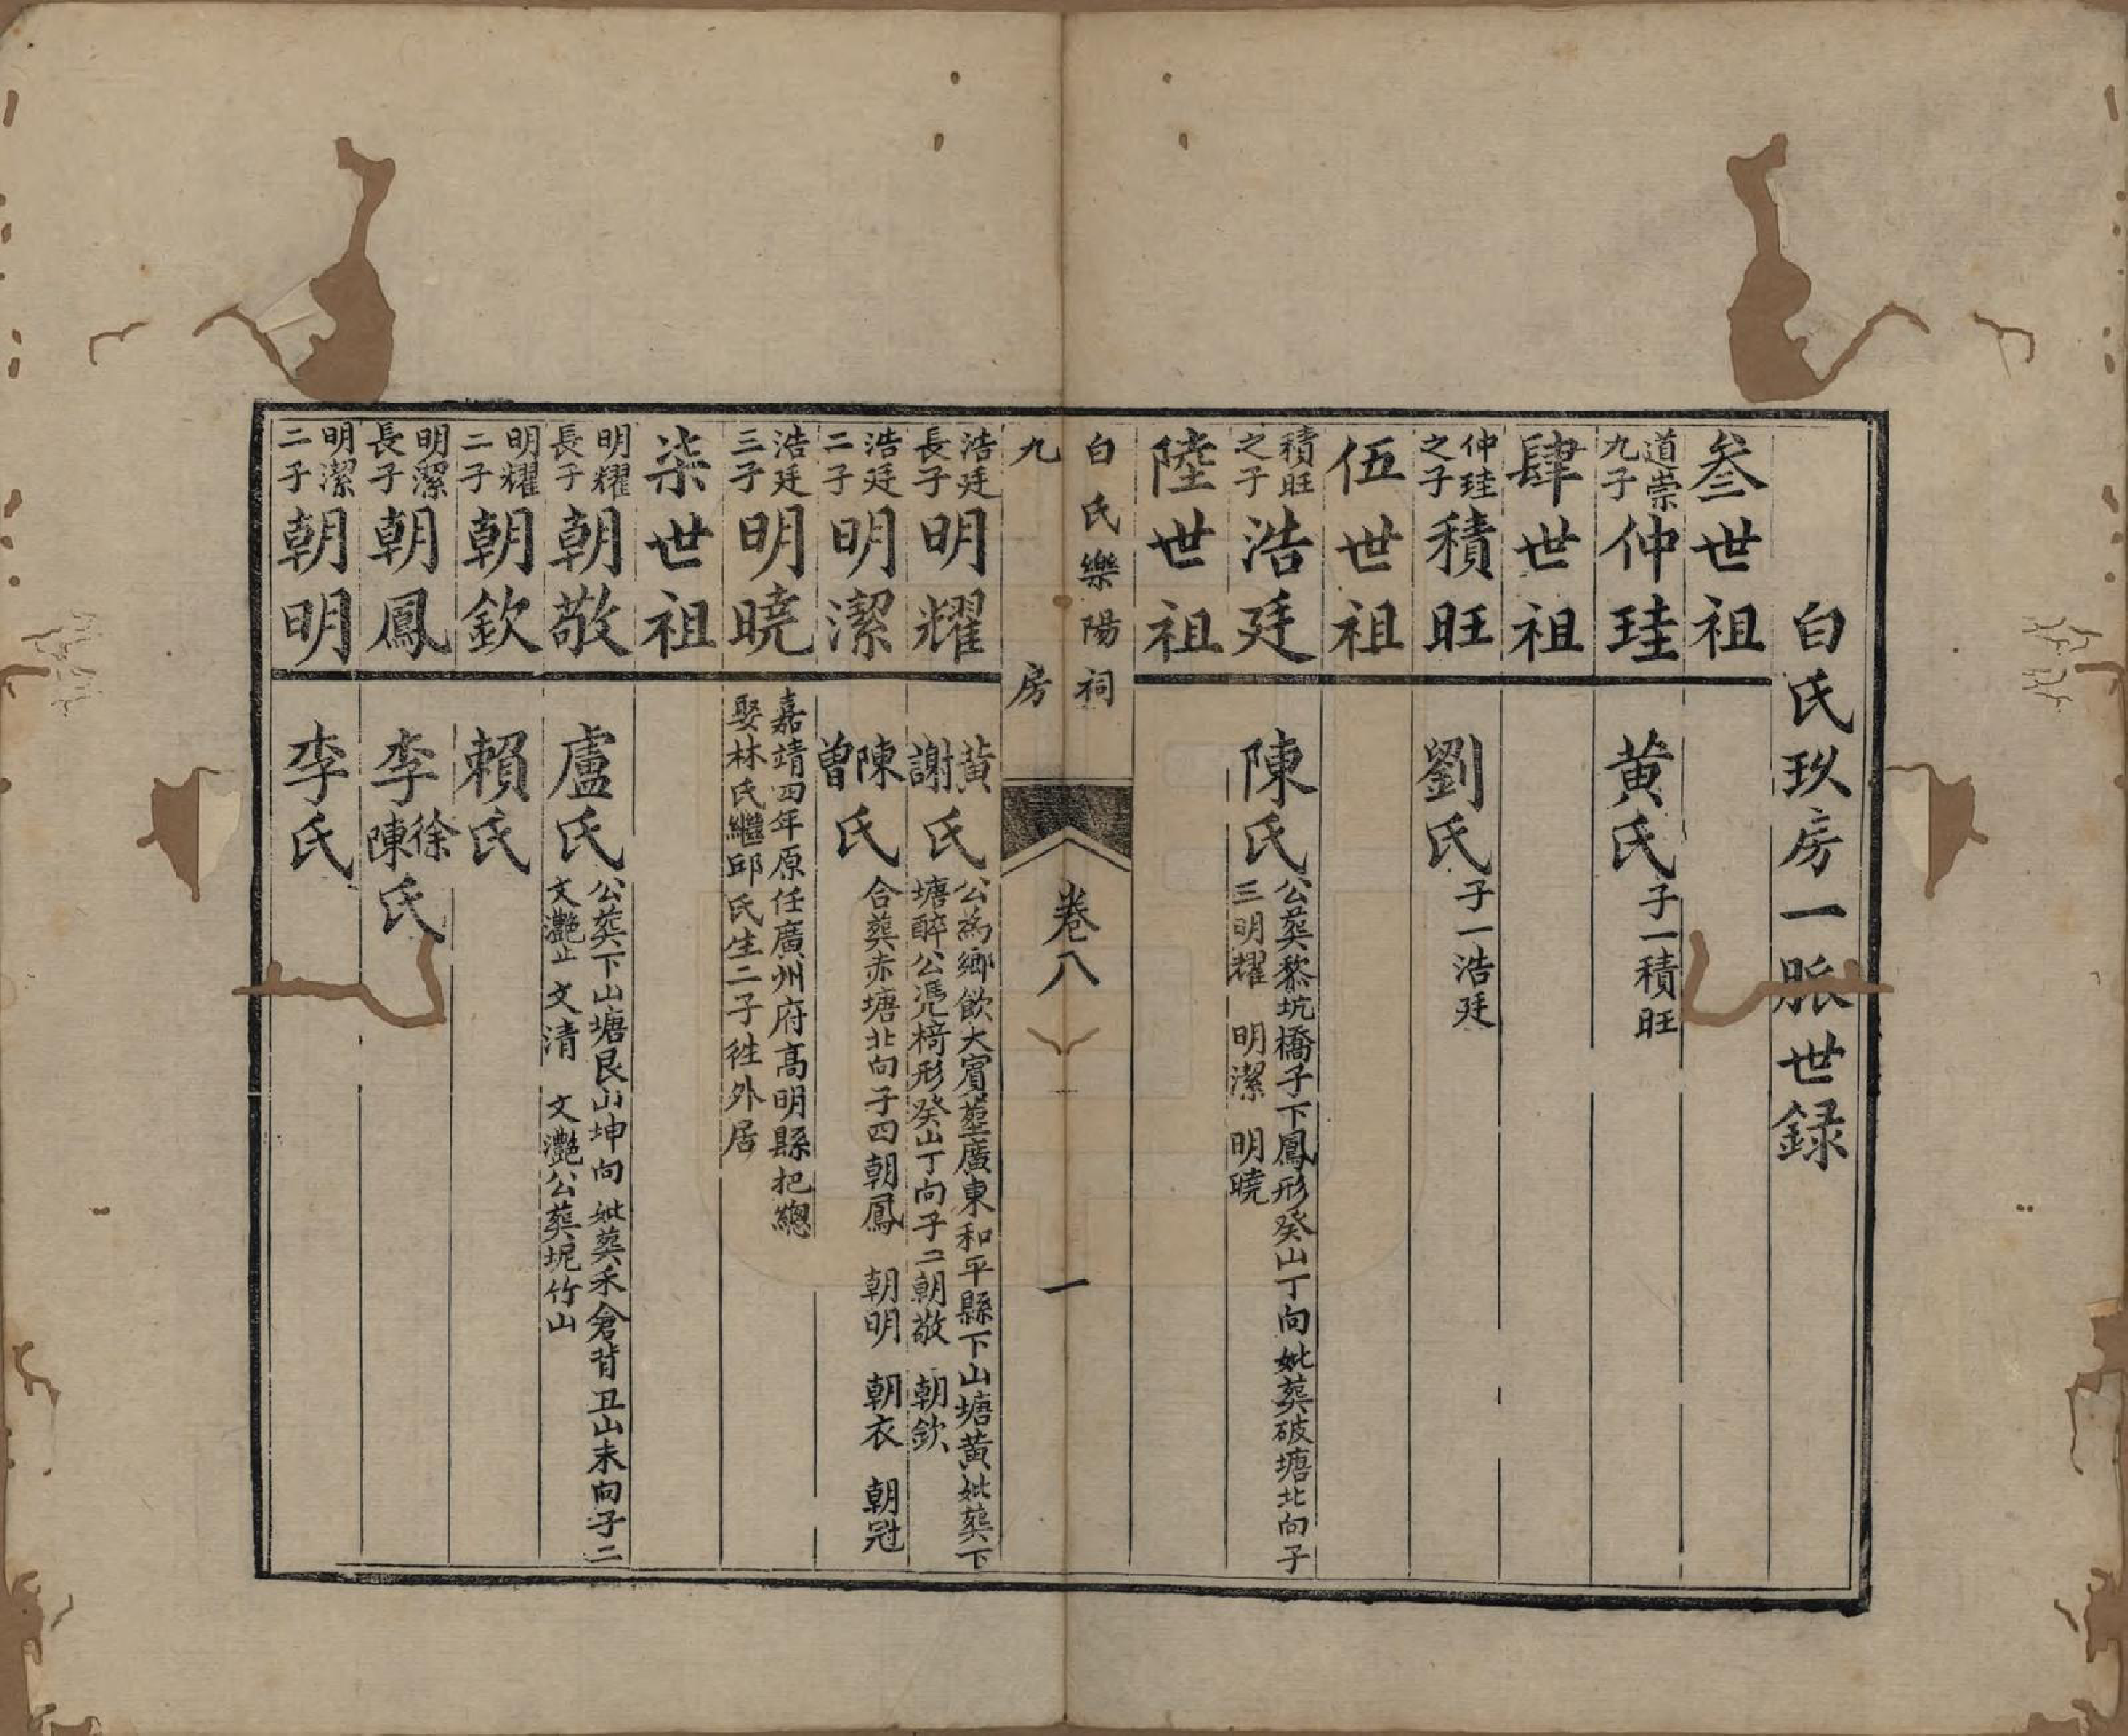 白氏玖房一脈世録
叁世祖
道崇九子仲珪
黄氏
子一積旺
肆世祖
仲珪之子積旺
劉氏
子一浩廷
伍世祖
積旺之子浩廷
陳氏
公葬黎坑橋子下鳳形癸山丁向妣葬破塘北向子
三明耀 明潔 明曉
陸世祖
白氏樂陽祠
九房
卷八
一
浩廷長子明耀
黄謝氏
公為鄉飲大賓塟廣東和平縣下山塘黄妣葬下
塘醉公凭椅形癸山丁向子二朝敬 朝欽
浩廷二子明潔
陳曾氏
合葬赤塘北向子四朝鳳 朝明 朝衣 朝冠
浩廷三子明曉
嘉靖四年原任廣州府髙明縣把緫
娶林氏繼邱氏生二子徃外居
柒世祖
明耀長子朝敬
盧氏
公葬下山塘艮山坤向妣葬禾倉背丑山未向子二
文灔止 文清 文灔公葬坭竹山
明耀二子朝欽
賴氏
明潔長子朝鳳
李徐陳氏
明潔二子朝明
李氏